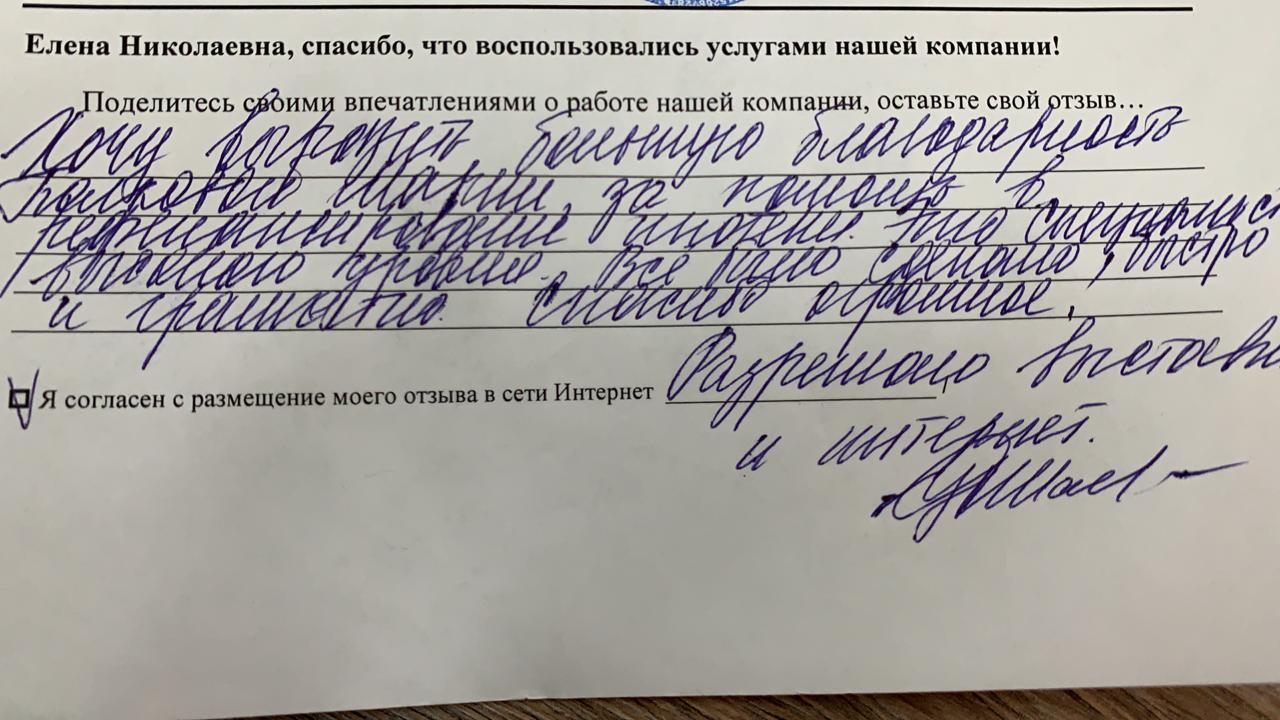 Елена Николаевна, спасибо, что воспользовались услугами нашей компании!
Поделитесь своими впечатлениями о работе нашей компании, оставьте свой отзыв…
Хочу выразить большую благодарность
Марии за помощь в
рефинансировании ипотеки. Это специалист
высокого уровня. Всё было сделано, быстро
и грамотно. Спасибо огромное,
Я согласен с размещение моего отзыва в сети Интернет Разрешаю
и интернет.